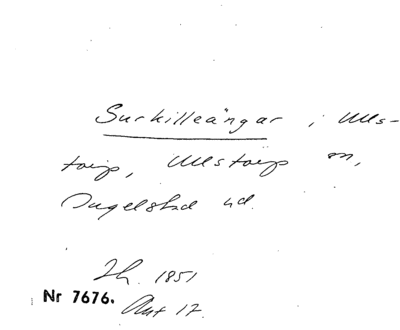 Surkilleängar i Ulls-
torp, Ullstorp sn,
Ingelstad hd.
Lh. 1851
Nr 7676. Akt 17.